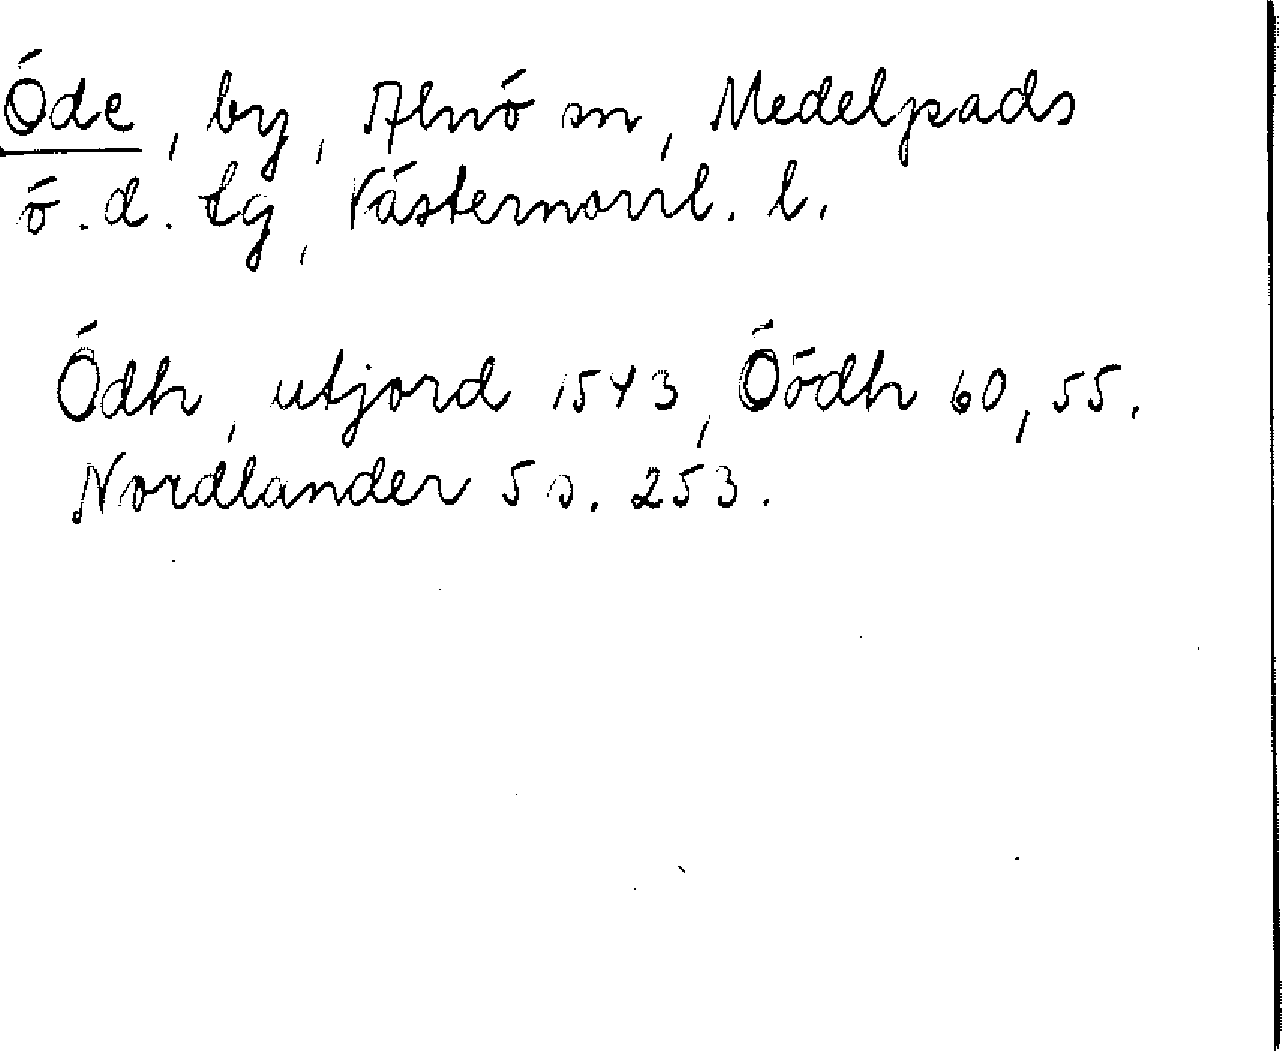 Öde, by, Alnö sn, Medelpads
ö. d. tg, Västernorrl. l.
Ödh, utjord 1543, Öödh 60, 55.
Nordlander 5 s. 253.